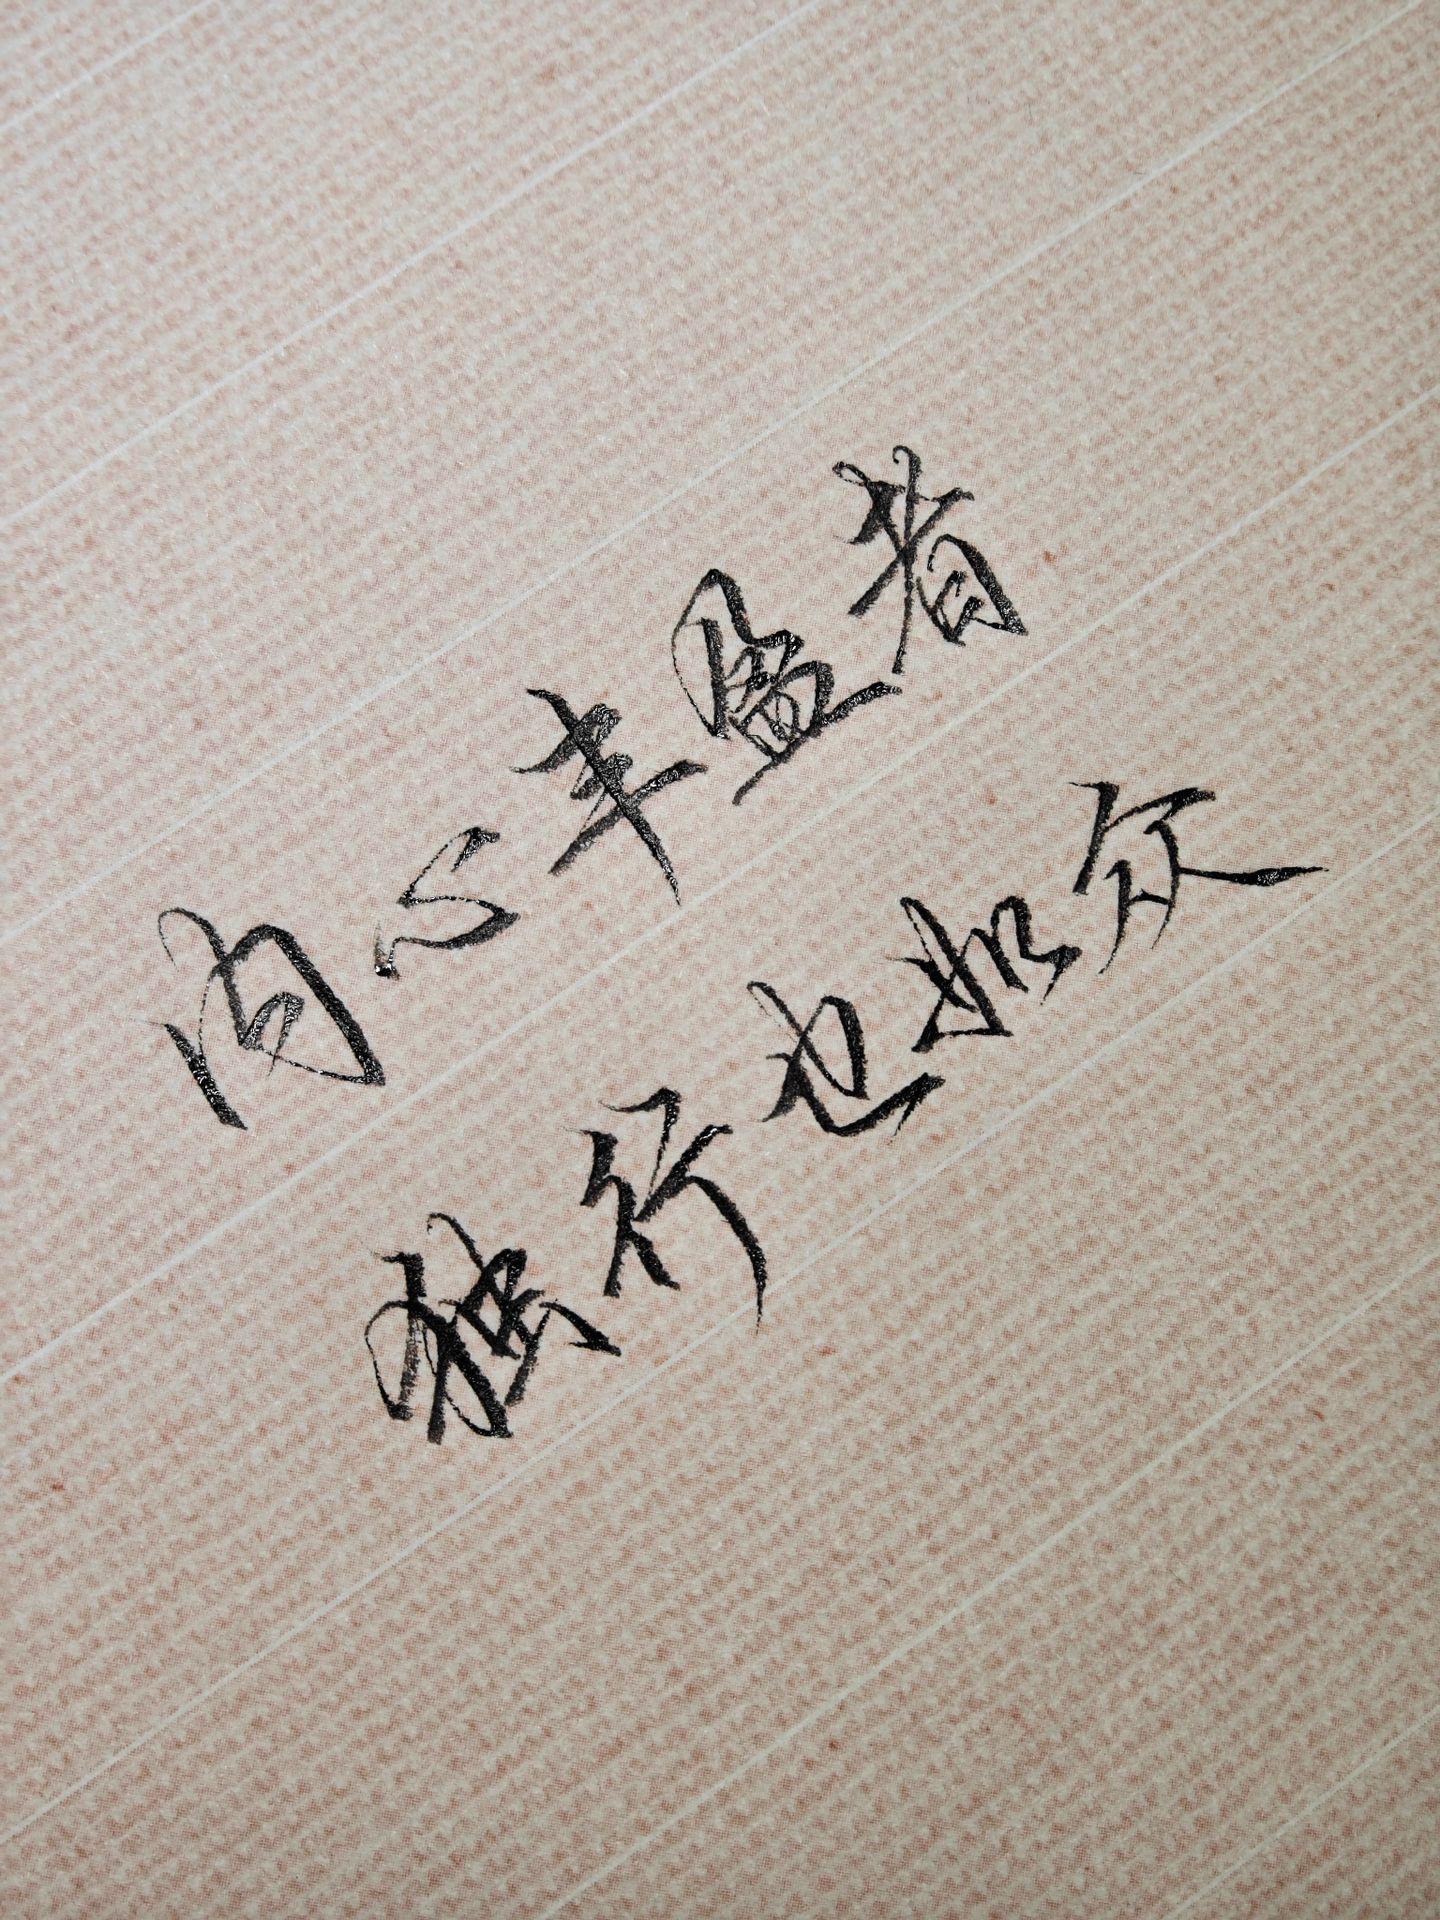 内心丰盈者
独行也如众